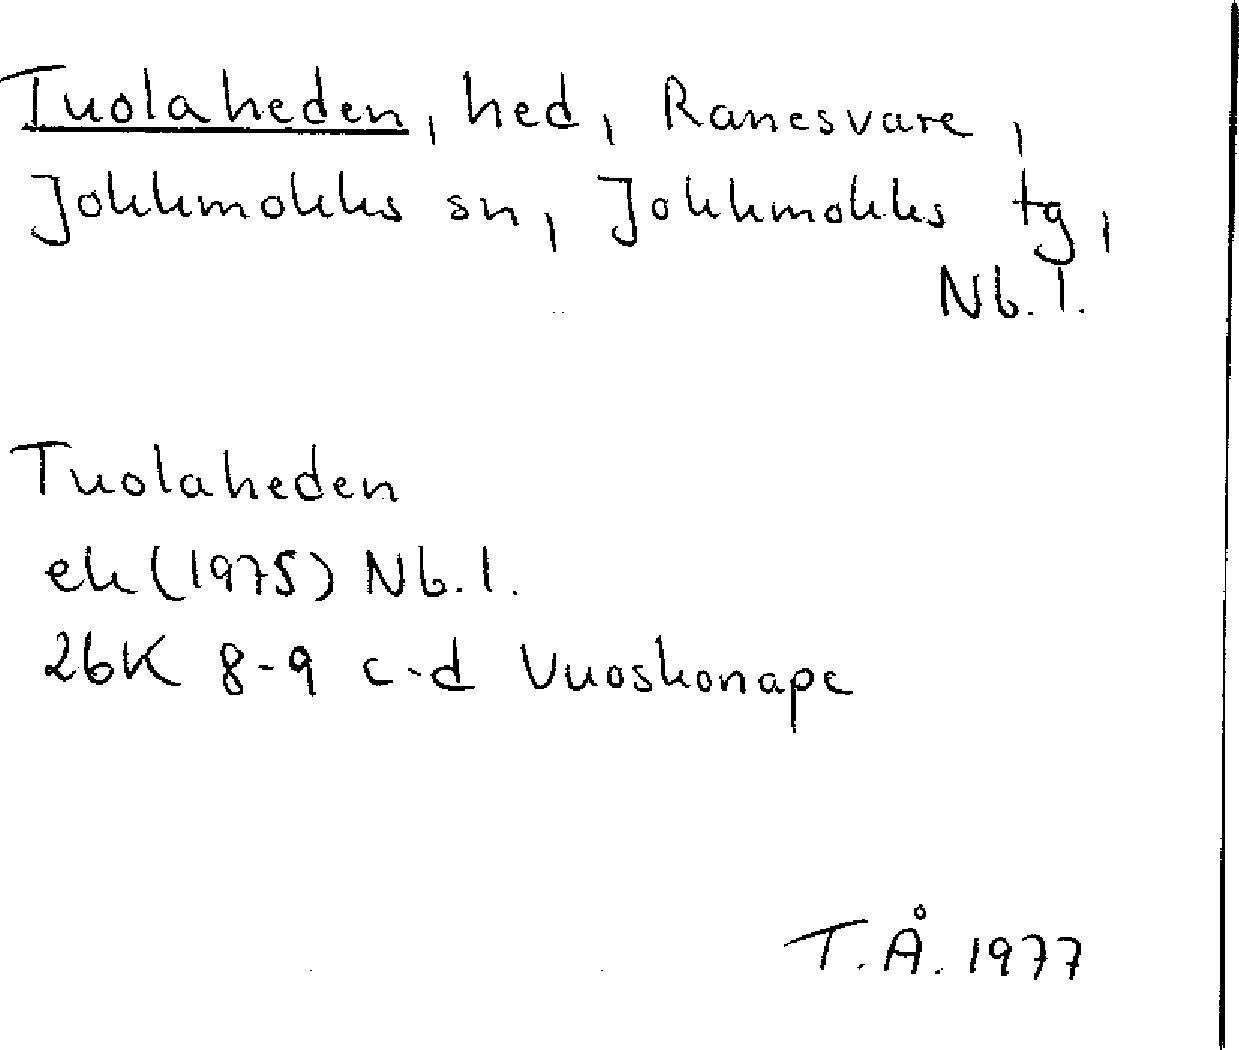 Tuolaheden, hed, Ranesvare,
Jokkmokks sn, Jokkmokks tg,
Nb. l.
Tuolaheden
ek (1975) Nb. l.
26K 8-9 c-d Vuoskonape
T. Å. 1977